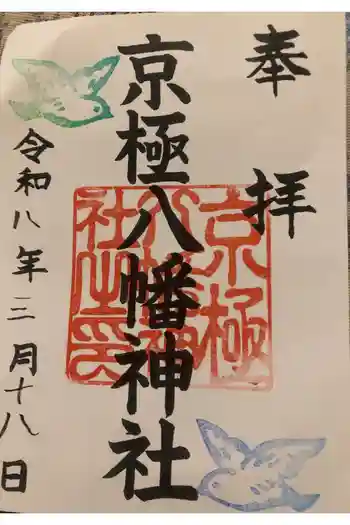 奉拝
京極八幡神社
令和八年三月十八日
京極
八幡神
社之印